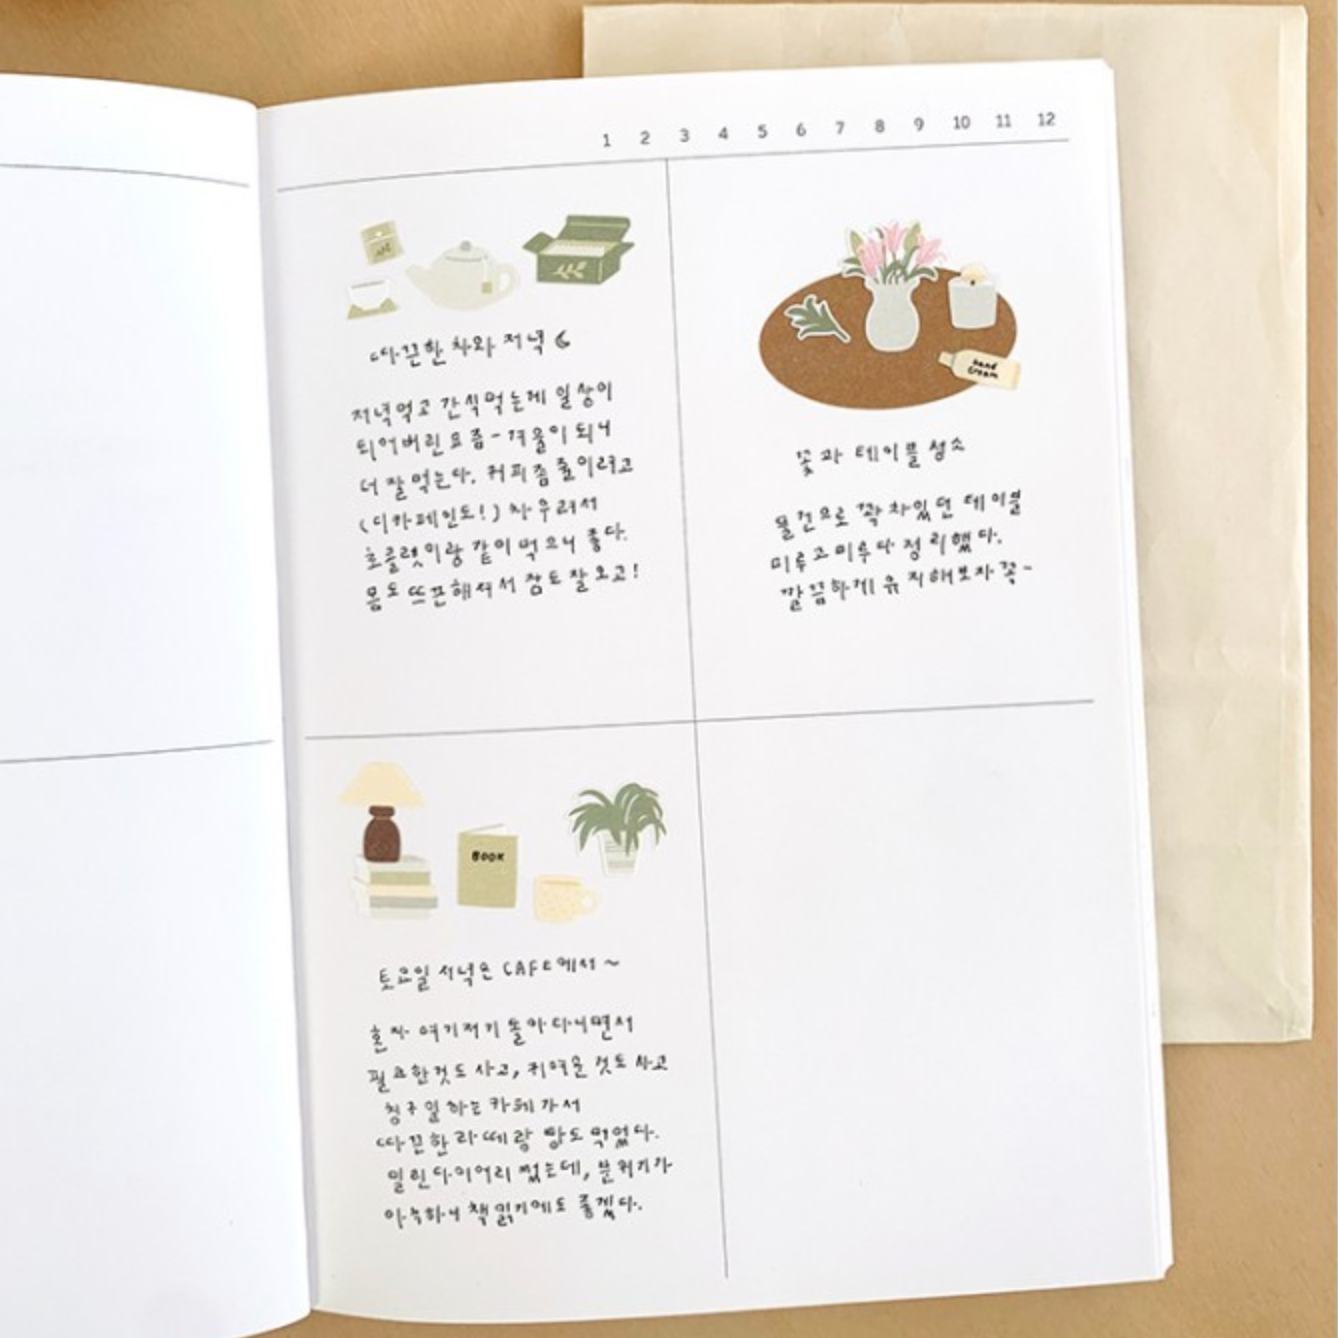 1 2 3 4 5 6 7 8 9 10 11 12
따끈한 차와 저녁
저녁먹고 간식먹는게 일상이
되어버린요즘- 겨울이되니
더 잘먹는다. 커피좀줄이려고
(디카페인도!) 차우려서
초콜릿이랑 같이먹으니 좋다.
몸도 뜨끈해져서 잠도잘오고!
hand
cream
꽃과 테이블청소
물건으로 꽉차있던 테이블
미루고미루다 정리했다.
깔끔하게유지해보자 꼭~
BOOK
토요일 저녁은 CAFE에서~
혼자 여기저기 돌아다니면서
필요한것도 사고, 귀여운것도 사고
친구일하는카페가서
따끈한라떼랑 빵도 먹었다.
밀린다이어리 썼는데, 분위기가
아늑하니 책읽기에도 좋겠다.